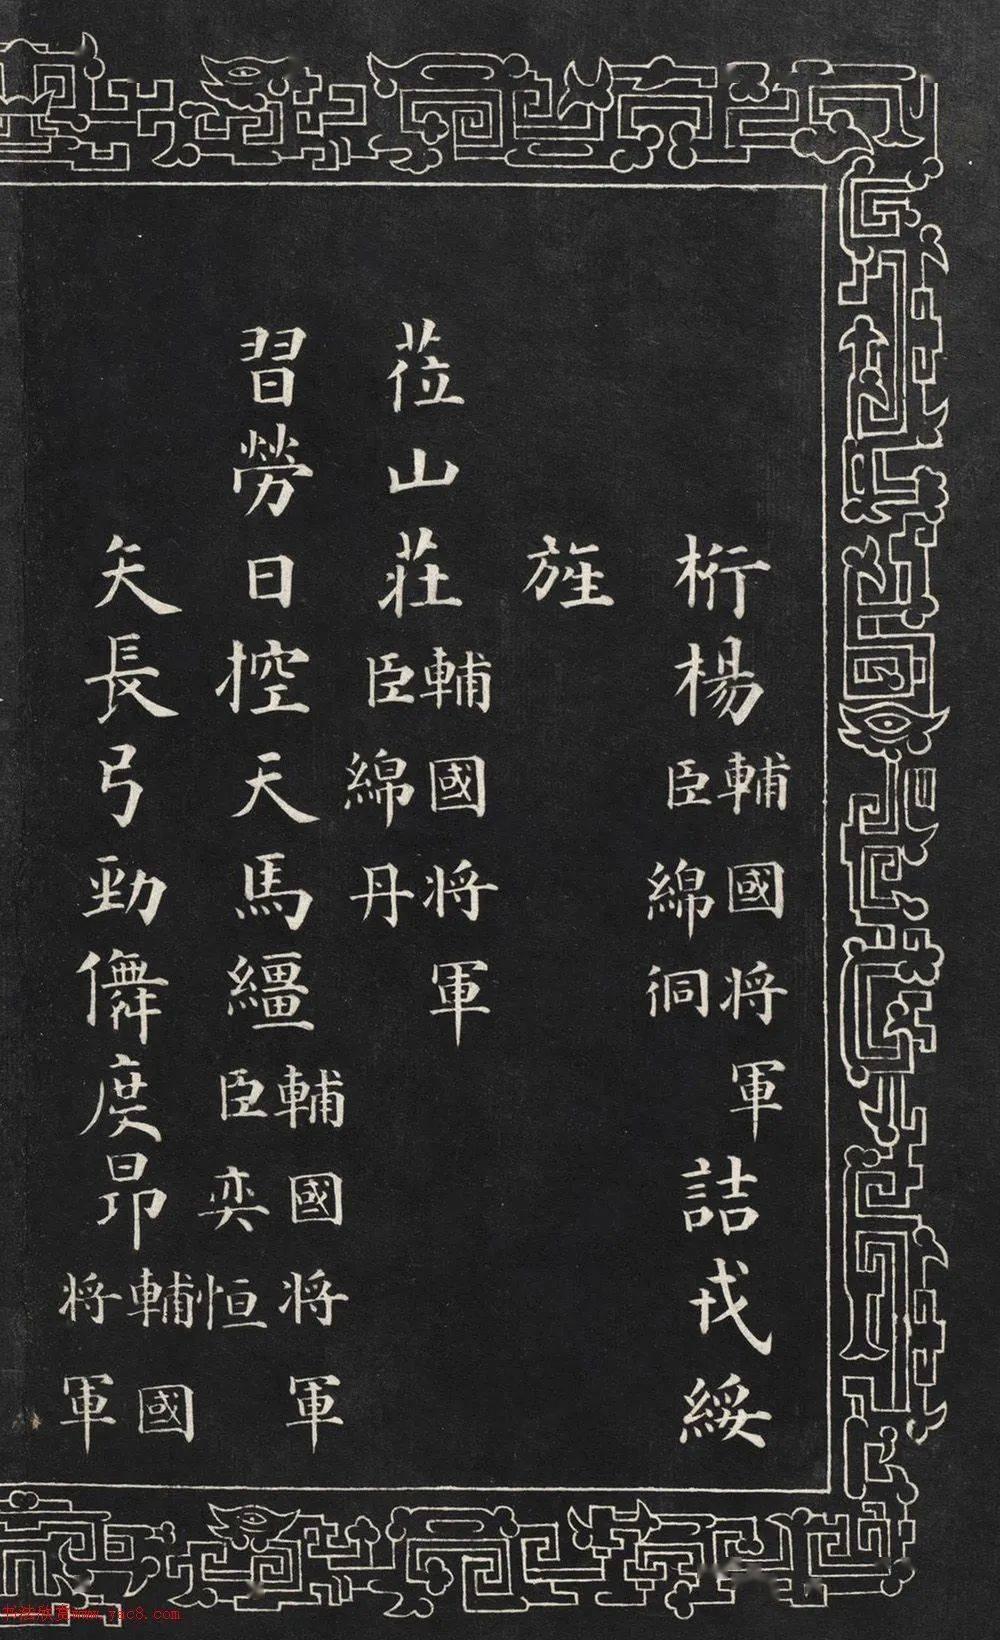 桁楊輔國将軍臣綿侗詰戎綏
旌
莅山莊輔國将軍臣綿丹
習勞日控天馬繮輔國将軍臣奕恒
矢長弓勁儛度昂輔國将軍
书法欣赏www.yac8.com